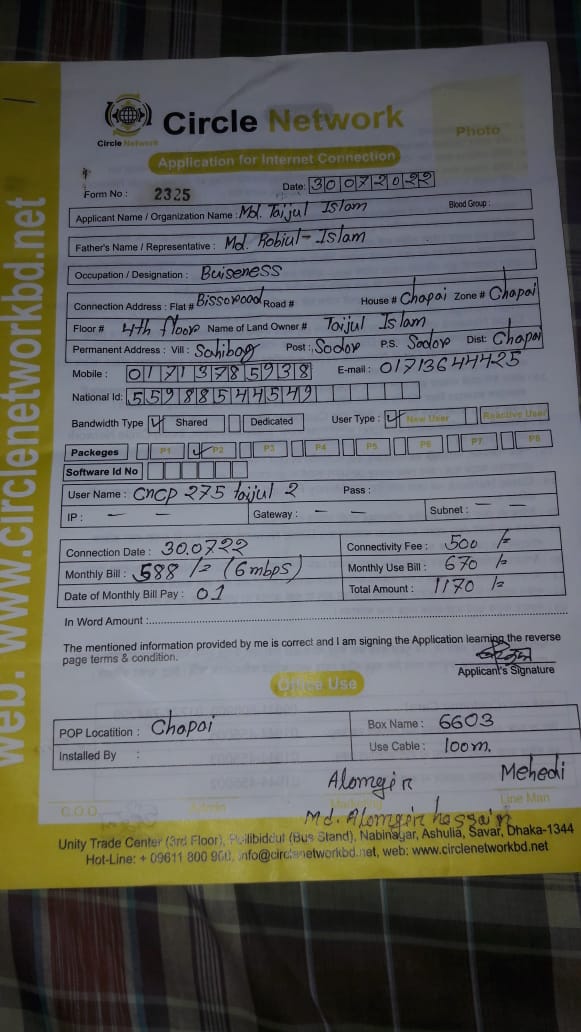 Circle Network
Circle Network
Photo
Application for Internet Connection
Form No : 2325 Date: 30072022
Applicant Name / Organization Name : Md. Taijul Islam Blood Group :
Father's Name / Representative : Md. Robiul-Islam
Occupation / Designation : Buiseness
Connection Address : Flat # Road # House # Chapai Zone # Chapai
Floor # 4th floor Name of Land Owner # Taijul Islam
Permanent Address : Vill : Post : Sodor P.S. Sodor Dist: Chapai
Mobile : 01713785938 E-mail : 01713644425
National Id: 55988544549
Bandwidth Type Shared Dedicated User Type : New User Reactive User
Packeges P1 P2 P3 P4 P5 P6 P7 P8
Software Id No
User Name : CNCP 275 taijul 2 Pass :
IP : — — Gateway : — — Subnet : — —
Connection Date : 30.0722 Connectivity Fee : 500 /=
Monthly Bill : 588 /= (6mbps) Monthly Use Bill : 670 /=
Date of Monthly Bill Pay : 01 Total Amount : 1170 /=
In Word Amount :
The mentioned information provided by me is correct and I am signing the Application learning the reverse
page terms & condition.
Applicant's Signature
Office Use
POP Locatition : Chapai Box Name : 6603
Installed By : Use Cable : 100m.
Alomgir Mehedi
C.O.O. Admin Marketing Line Man
Md. Alomgir hossain
Unity Trade Center (3rd Floor), Pollibiddut (Bus Stand), Nabinagar, Ashulia, Savar, Dhaka-1344
Hot-Line: + 09611 800 900, info@circlenetworkbd.net, web: www.circlenetworkbd.net
web: www.circlenetworkbd.net